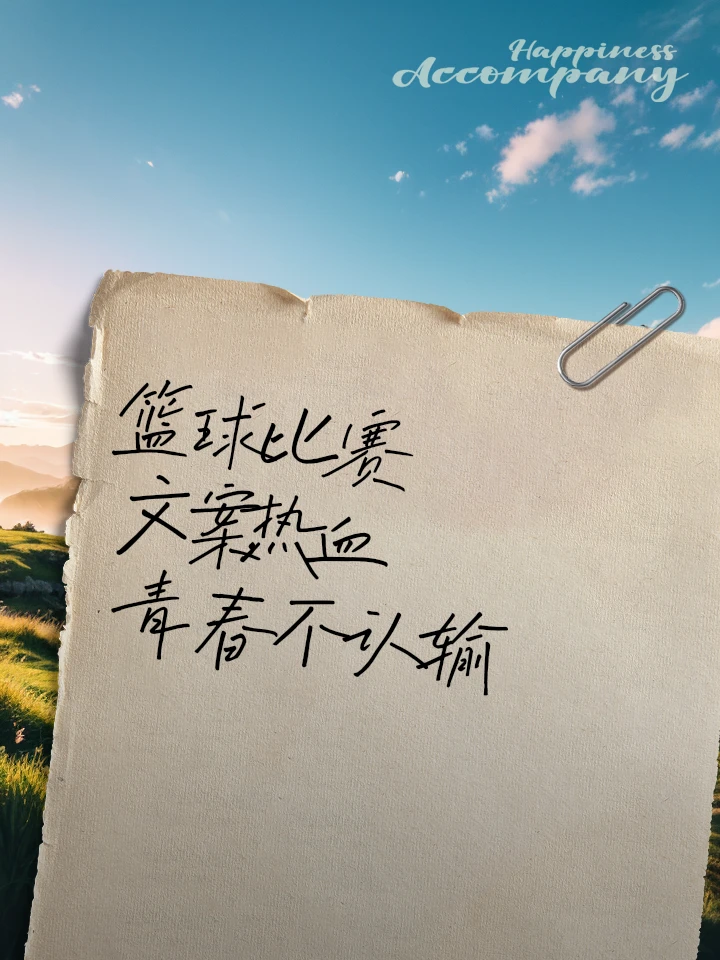 Happiness
Accompany
篮球比赛
文案热血
青春不认输